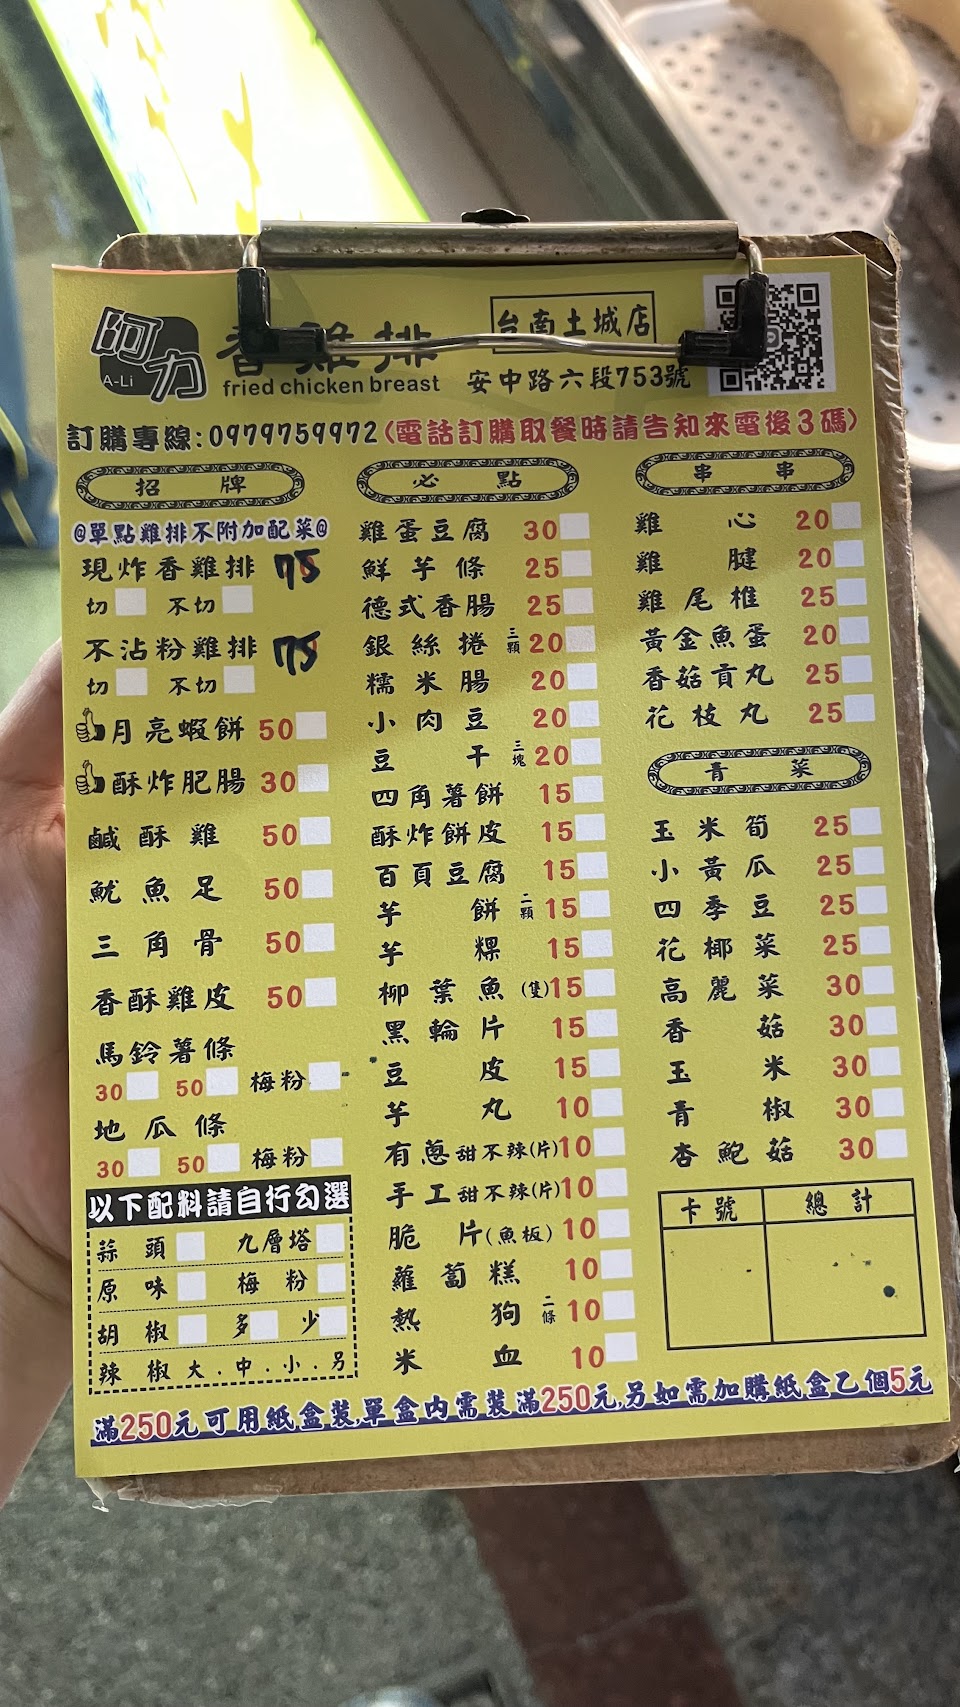 阿力
A-Li
香雞排
fried chicken breast
台南土城店
安中路六段753號
訂購專線:0979759972(電話訂購取餐時請告知來電後3碼)
招牌
@單點雞排不附加配菜@
現炸香雞排 75
切 不切
不沾粉雞排 75
切 不切
月亮蝦餅 50
酥炸肥腸 30
鹹酥雞 50
魷魚足 50
三角骨 50
香酥雞皮 50
馬鈴薯條
30 50 梅粉
地瓜條
30 50 梅粉
以下配料請自行勾選
蒜頭 九層塔
原味 梅粉
胡椒 多 少
辣椒 大.中.小.另
必點
雞蛋豆腐 30
鮮芋條 25
德式香腸 25
銀絲捲 三顆 20
糯米腸 20
小肉豆 20
豆干 三塊 20
四角薯餅 15
酥炸餅皮 15
百頁豆腐 15
芋餅 二顆 15
芋粿 15
柳葉魚(隻)15
黑輪片 15
豆皮 15
芋丸 10
有蔥甜不辣(片)10
手工甜不辣(片)10
脆片(魚板) 10
蘿蔔糕 10
熱狗 二條 10
米血 10
串串
雞心 20
雞腱 20
雞尾椎 25
黃金魚蛋 20
香菇貢丸 25
花枝丸 25
青菜
玉米筍 25
小黃瓜 25
四季豆 25
花椰菜 25
高麗菜 30
香菇 30
玉米 30
青椒 30
杏鮑菇 30
卡號 總計
滿250元可用紙盒裝,單盒內需裝滿250元,另如需加購紙盒乙個5元